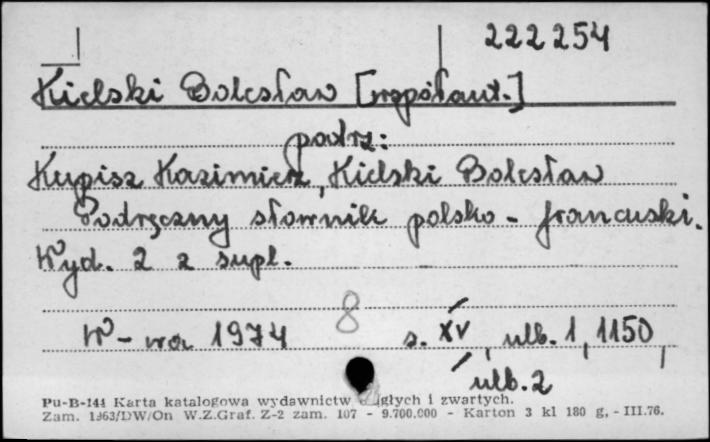 222254
Kielski Bolesław [współaut.]
patrz:
Kupisz Kazimierz, Kielski Bolesław
Podręczny słownik polsko - francuski.
Wyd. 2 z supl.
8
W-wa 1974 s. XV, nlb. 1, 1150,
nlb. 2
Pu-B-144 Karta katalogowa wydawnictw głych i zwartych.
Zam. 1363/DW/On W.Z.Graf. Z-2 zam. 107 - 9.700.000 - Karton 3 kl 180 g, - III.76.